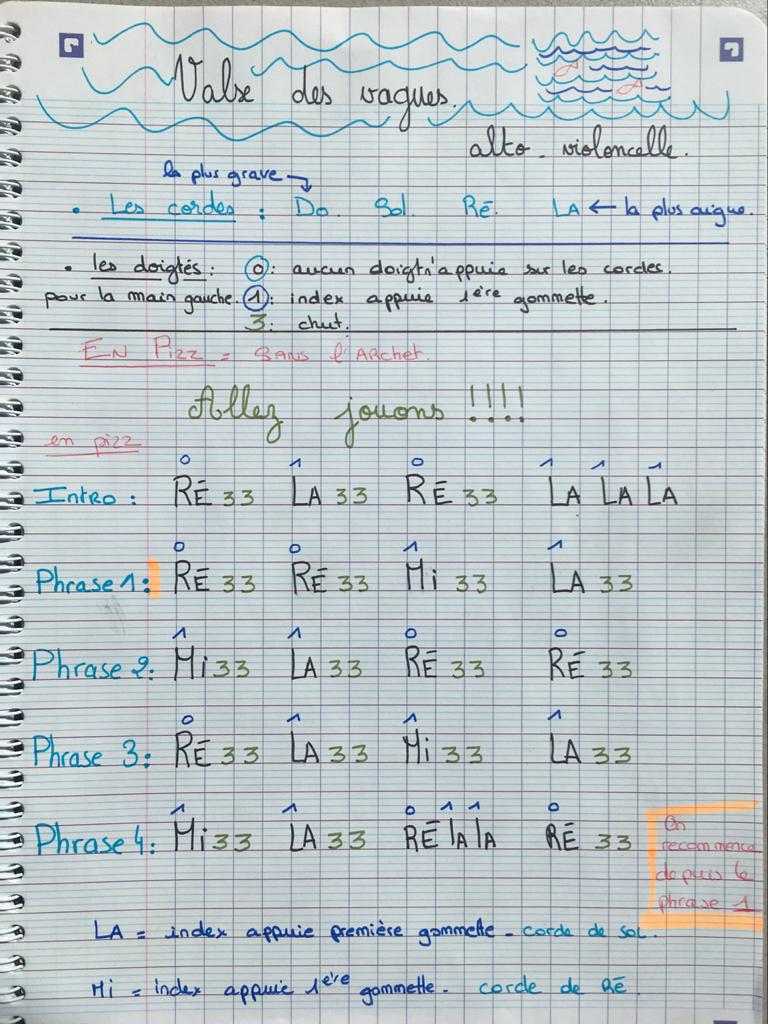 Valse des vagues.
alto - violoncelle.
la plus grave →
• Les cordes : Do. Sol. Ré. LA ← la plus aigue.
• les doigtés : 0 : aucun doigt n'appuie sur les cordes.
pour la main gauche. 1 : index appuie 1ère gommette.
3 : chut.
EN Pizz = SANS l'ARchet.
Allez jouons !!!!
en pizz
0 1 0 1 1 1
INTRO : RÉ 33 LA 33 RÉ 33 LA LA LA
0 0 1 1
Phrase 1 : RÉ 33 RÉ 33 Mi 33 LA 33
1 1 0 0
Phrase 2 : Mi 33 LA 33 RÉ 33 RÉ 33
0 1 1 1
Phrase 3 : RÉ 33 LA 33 Mi 33 LA 33
1 1 0 1 1 0
Phrase 4 : Mi 33 LA 33 RÉ lA lA RÉ 33
On
recommence
depuis la
phrase 1
LA = index appuie première gommette - corde de sol.
Mi = index appuie 1ère gommette - corde de Ré.